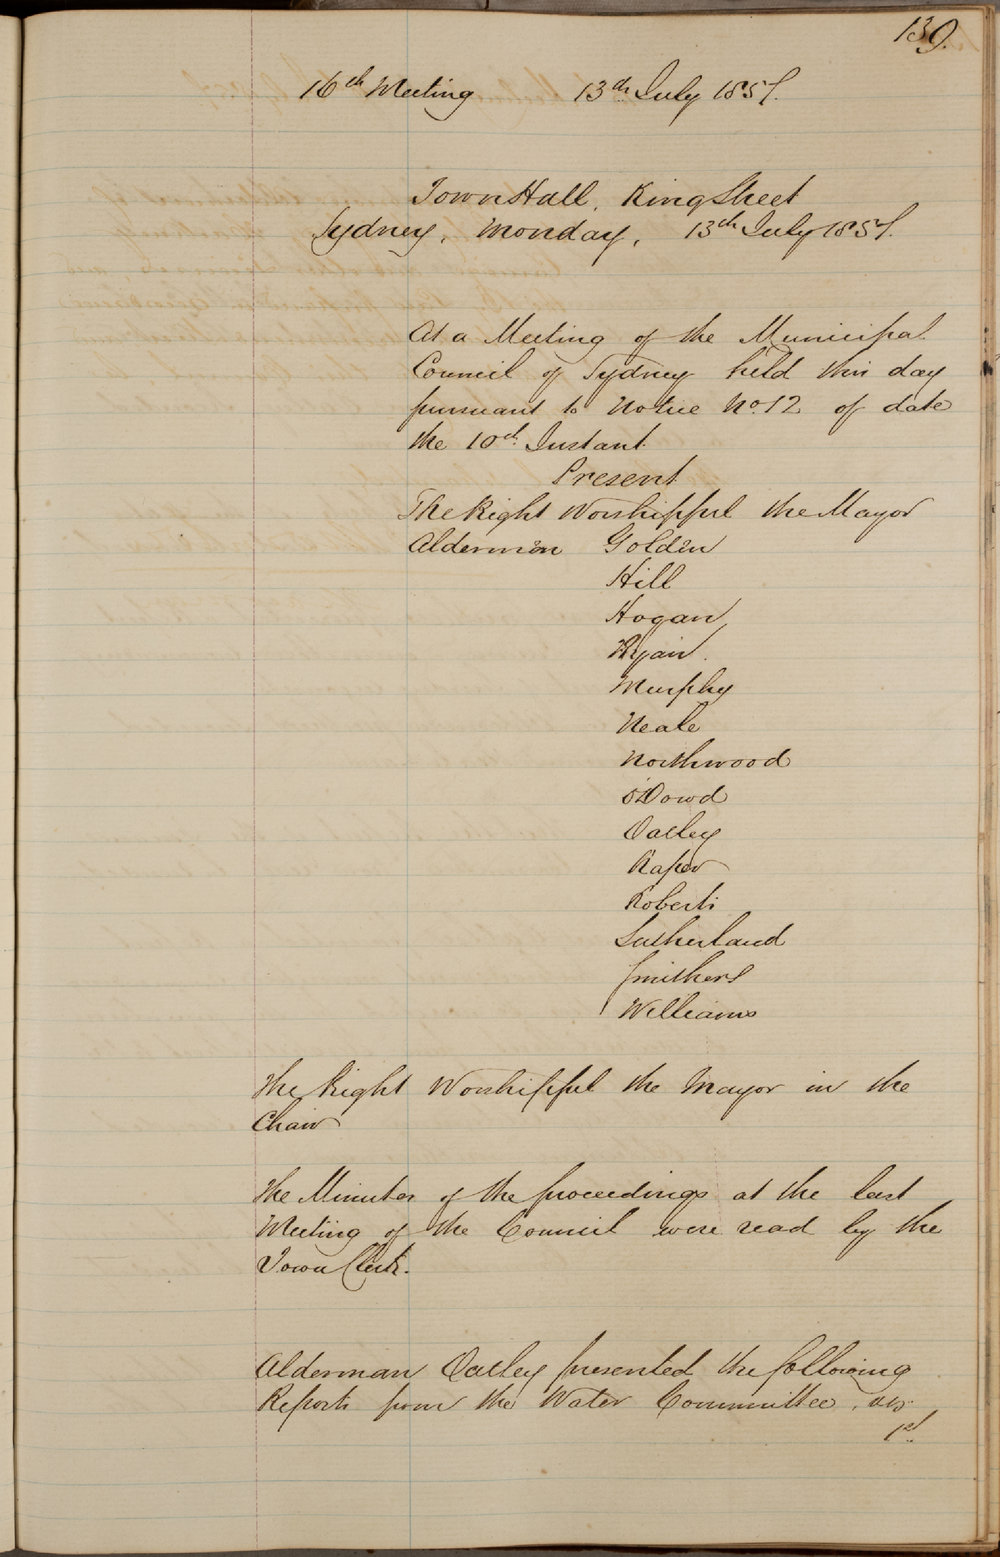 139.
16th Meeting 13th July 1857.
Town Hall, King Street
Sydney, Monday, 13th July 1857.
At a Meeting of the Municipal
Council of Sydney held this day
pursuant to Notice No. 12 of date
the 10th Instant
Present
The Right Worshipful the Mayor
Aldermen Golden
Hill
Hogan
Ryan
Murphy
Neale
Northwood
O'Dowd
Oatley
Raper
Roberts
Sutherland
Smithers
Williams
The Right Worshipful the Mayor in the
Chair
The Minutes of the proceedings at the last
Meeting of the Council were read by the
Town Clerk.
Alderman Oatley presented the following
Reports from the Water Committee, viz:
1st